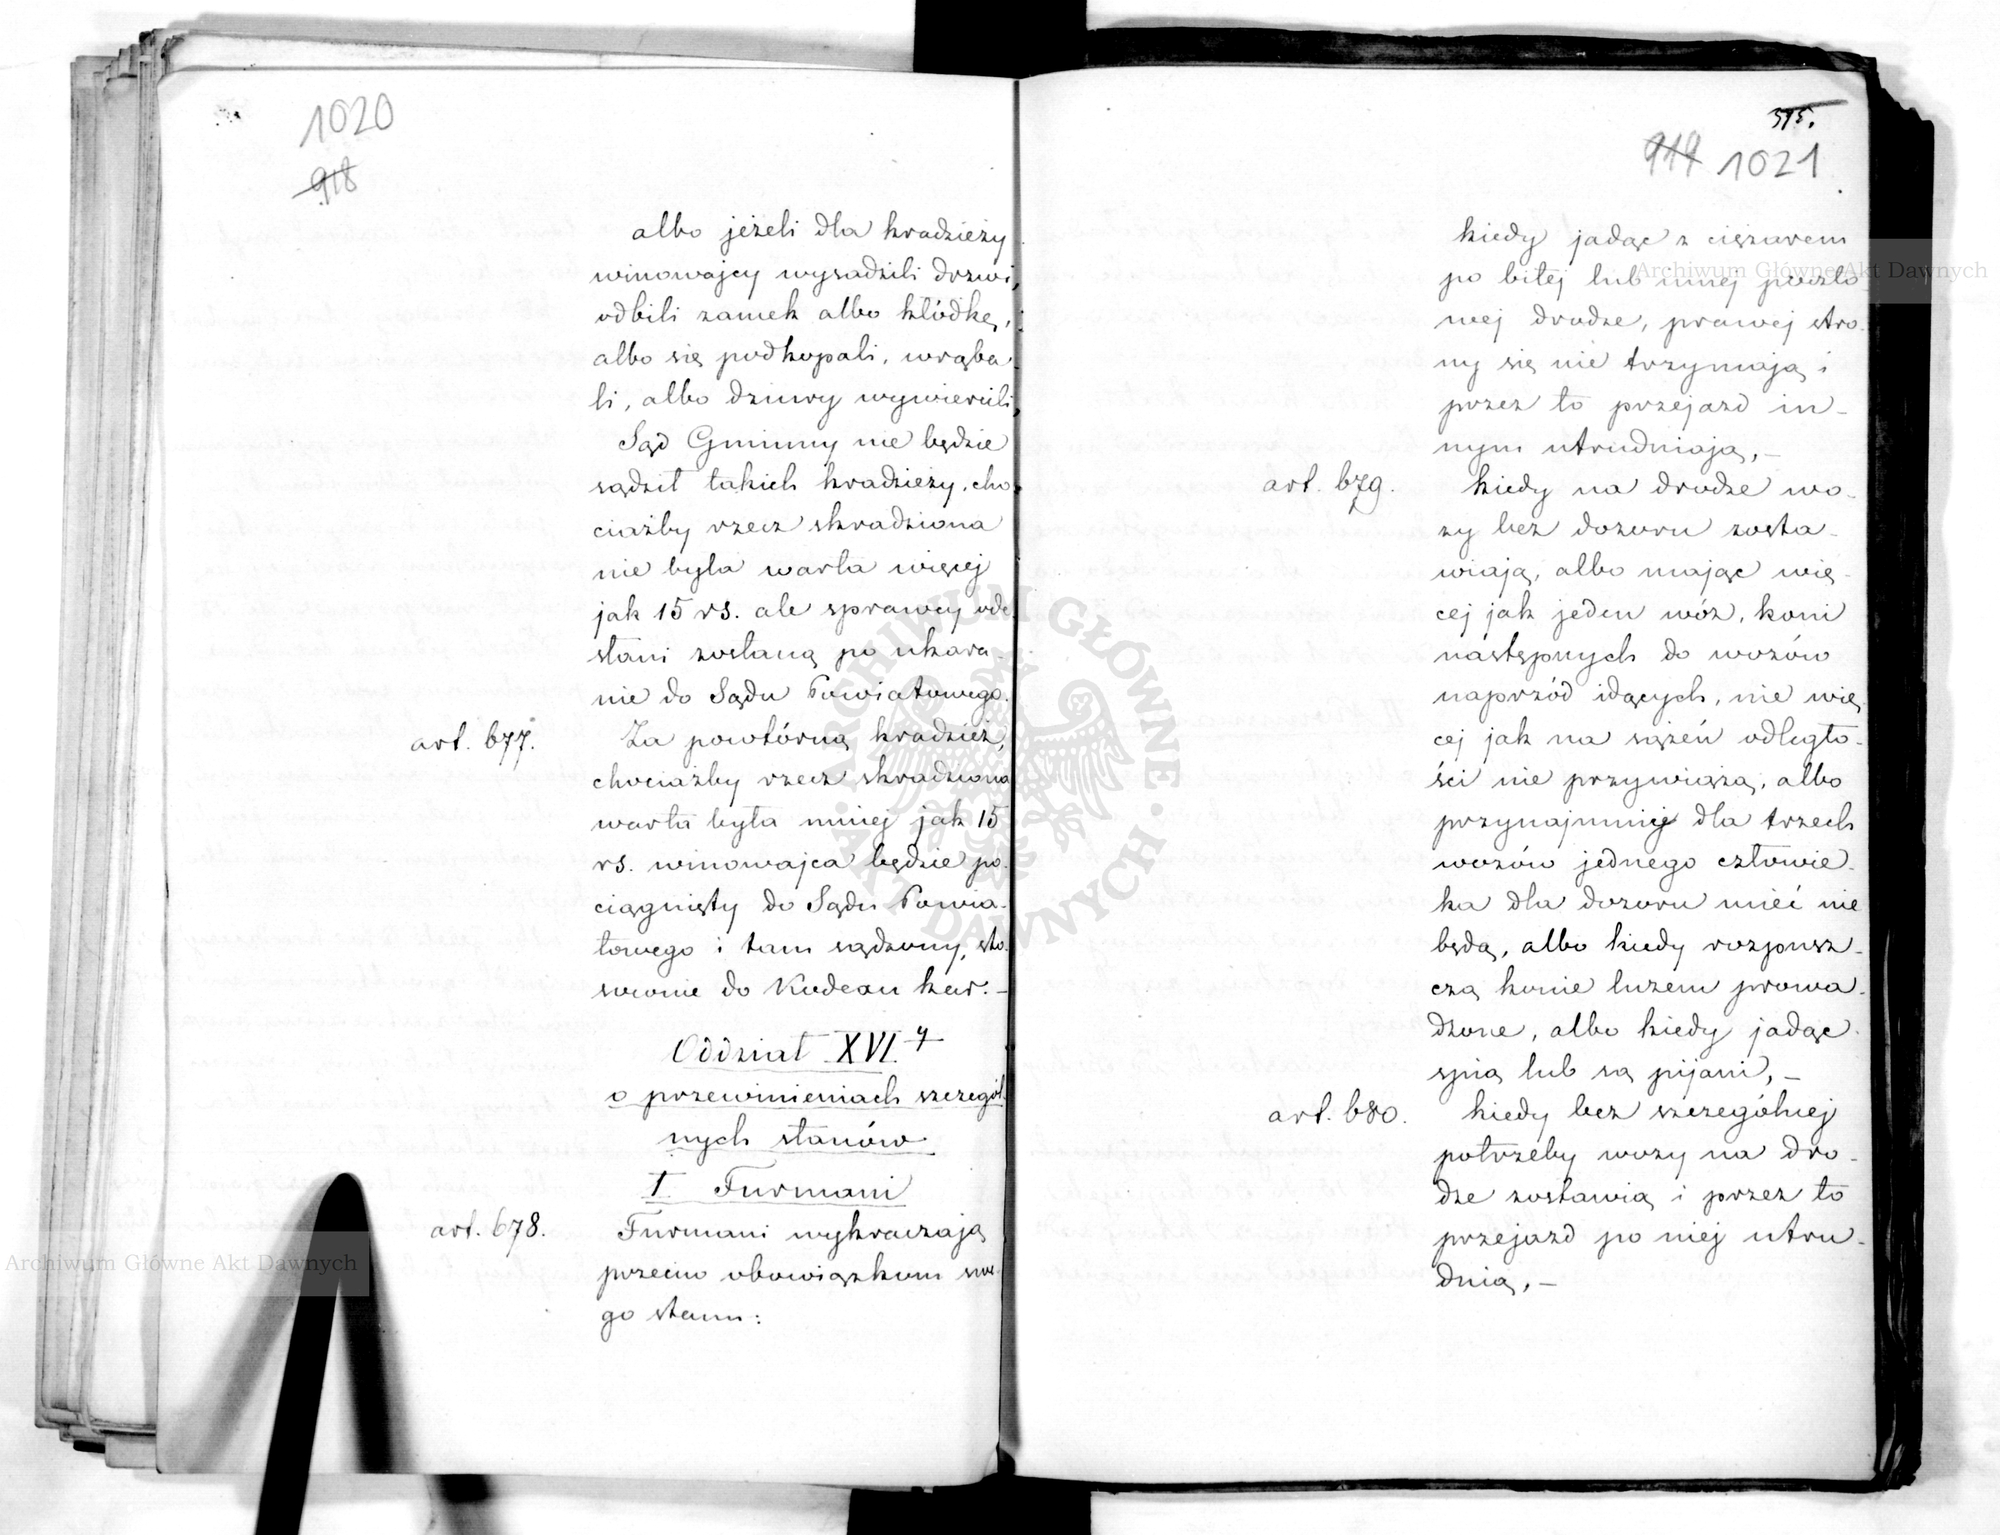 1020
918
albo jeżeli dla kradzieży
winowajcy wysadzili drzwi,
odbili zamek albo kłódkę,
albo się podkopali, wrąba-
li, albo dziury wywiercili,
Sąd Gminny nie będzie
sądził takich kradzieży, cho-
ciażby rzecz skradziona
nie była warta więcej
jak 15 rs. ale sprawcy ode-
słani zostaną po ukara-
nie do Sądu Powiatowego.
art. 677. Za powtórną kradzież,
chociażby rzecz skradziona
warta była mniej jak 15
rs. winowajca będzie po-
ciągnięty do Sądu Powia-
towego i tam sądzony, sto-
sownie do Kodexu kar. –
Oddział XVI-y
o przewinieniach szczegól-
nych stanów
I. Furmani
art. 678. Furmani wykraczają
przeciw obowiązkom swe-
go stanu:
595.
919 1021
kiedy jadąc z ciężarem
po bitej lub innej poczto-
wej drodze, prawej stro-
ny się nie trzymają i
przez to przejazd in-
nym utrudniają, –
art. 679. kiedy na drodze wo-
zy bez dozoru zosta-
wiają, albo mając wię-
cej jak jeden wóz, koni
następnych do wozów
naprzód idących, nie wię-
cej jak na sążeń odległo-
ści nie przywiążą, albo
przynajmniej dla trzech
wozów jednego człowie-
ka dla dozoru mieć nie
będą, albo kiedy rozpusz-
czą konie luzem prowa-
dzone, albo kiedy jadąc
spią lub są pijani, –
art. 680. kiedy bez szczególnej
potrzeby wozy na dro-
dze zostawią i przez to
przejazd po niej utru-
dnią, –
Archiwum Główne Akt Dawnych
Archiwum Główne Akt Dawnych
ARCHIWUM GŁÓWNE AKT DAWNYCH